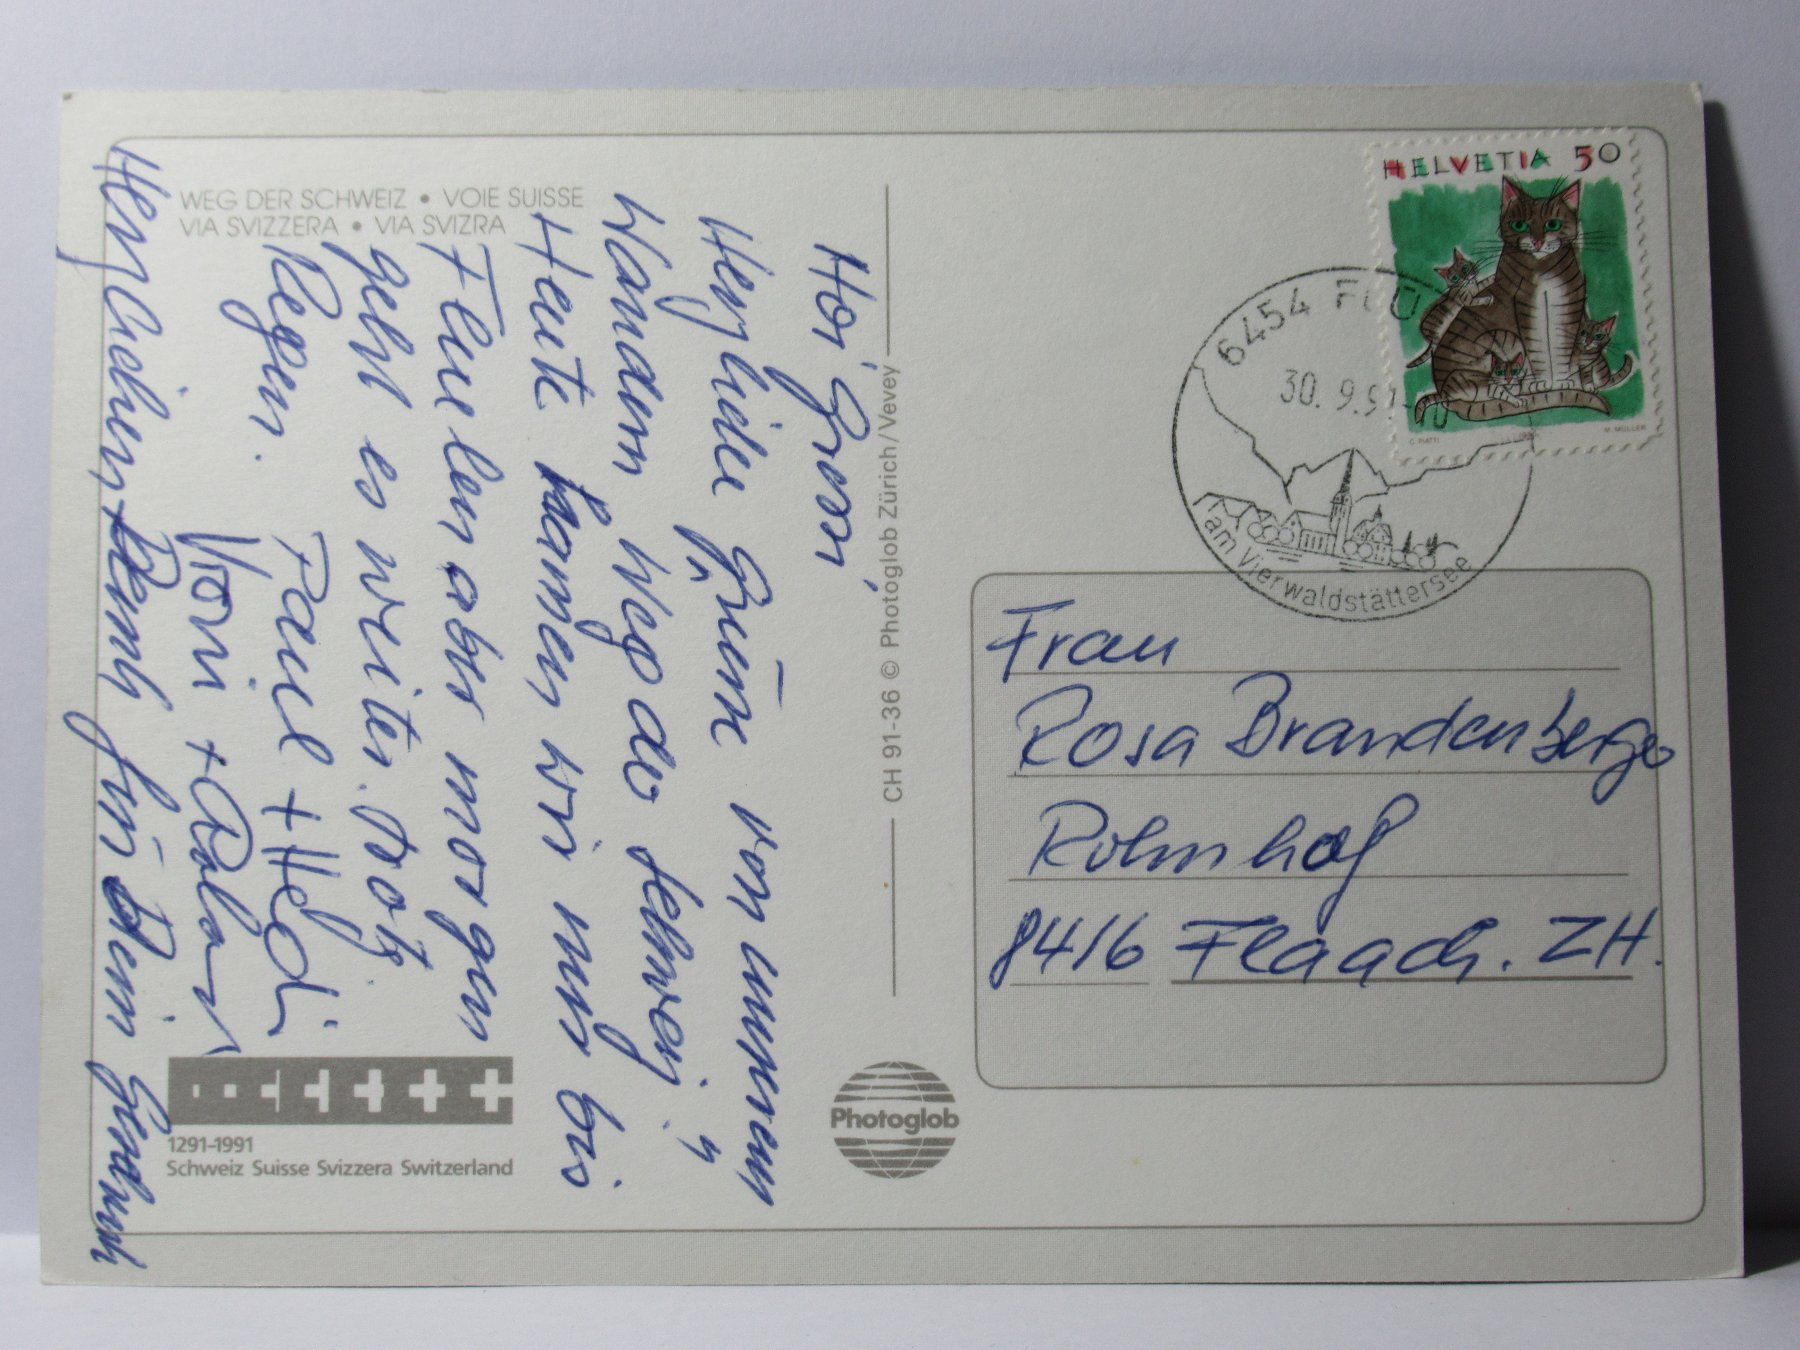 WEG DER SCHWEIZ • VOIE SUISSE
VIA SVIZZERA • VIA SVIZRA
Hoi Grosi,
Herzliche Grüsse von unserem
Wandern „Weg der Schweiz"
Heute kamen wir nur bis
Flüelen aber morgen
geht es weiter. trotz
Regen.
Paul + Hedi
Vroni +
Herzlichen Dank für Dein
1291–1991
Schweiz Suisse Svizzera Switzerland
CH 91-36 © Photoglob Zürich/Vevey
Photoglob
HELVETIA 50
C. PIATTI
M. MÜLLER
6454 FLÜ
30.9.91
am Vierwaldstättersee
Frau
Rosa Brandenberger
8416 Flaach. ZH.